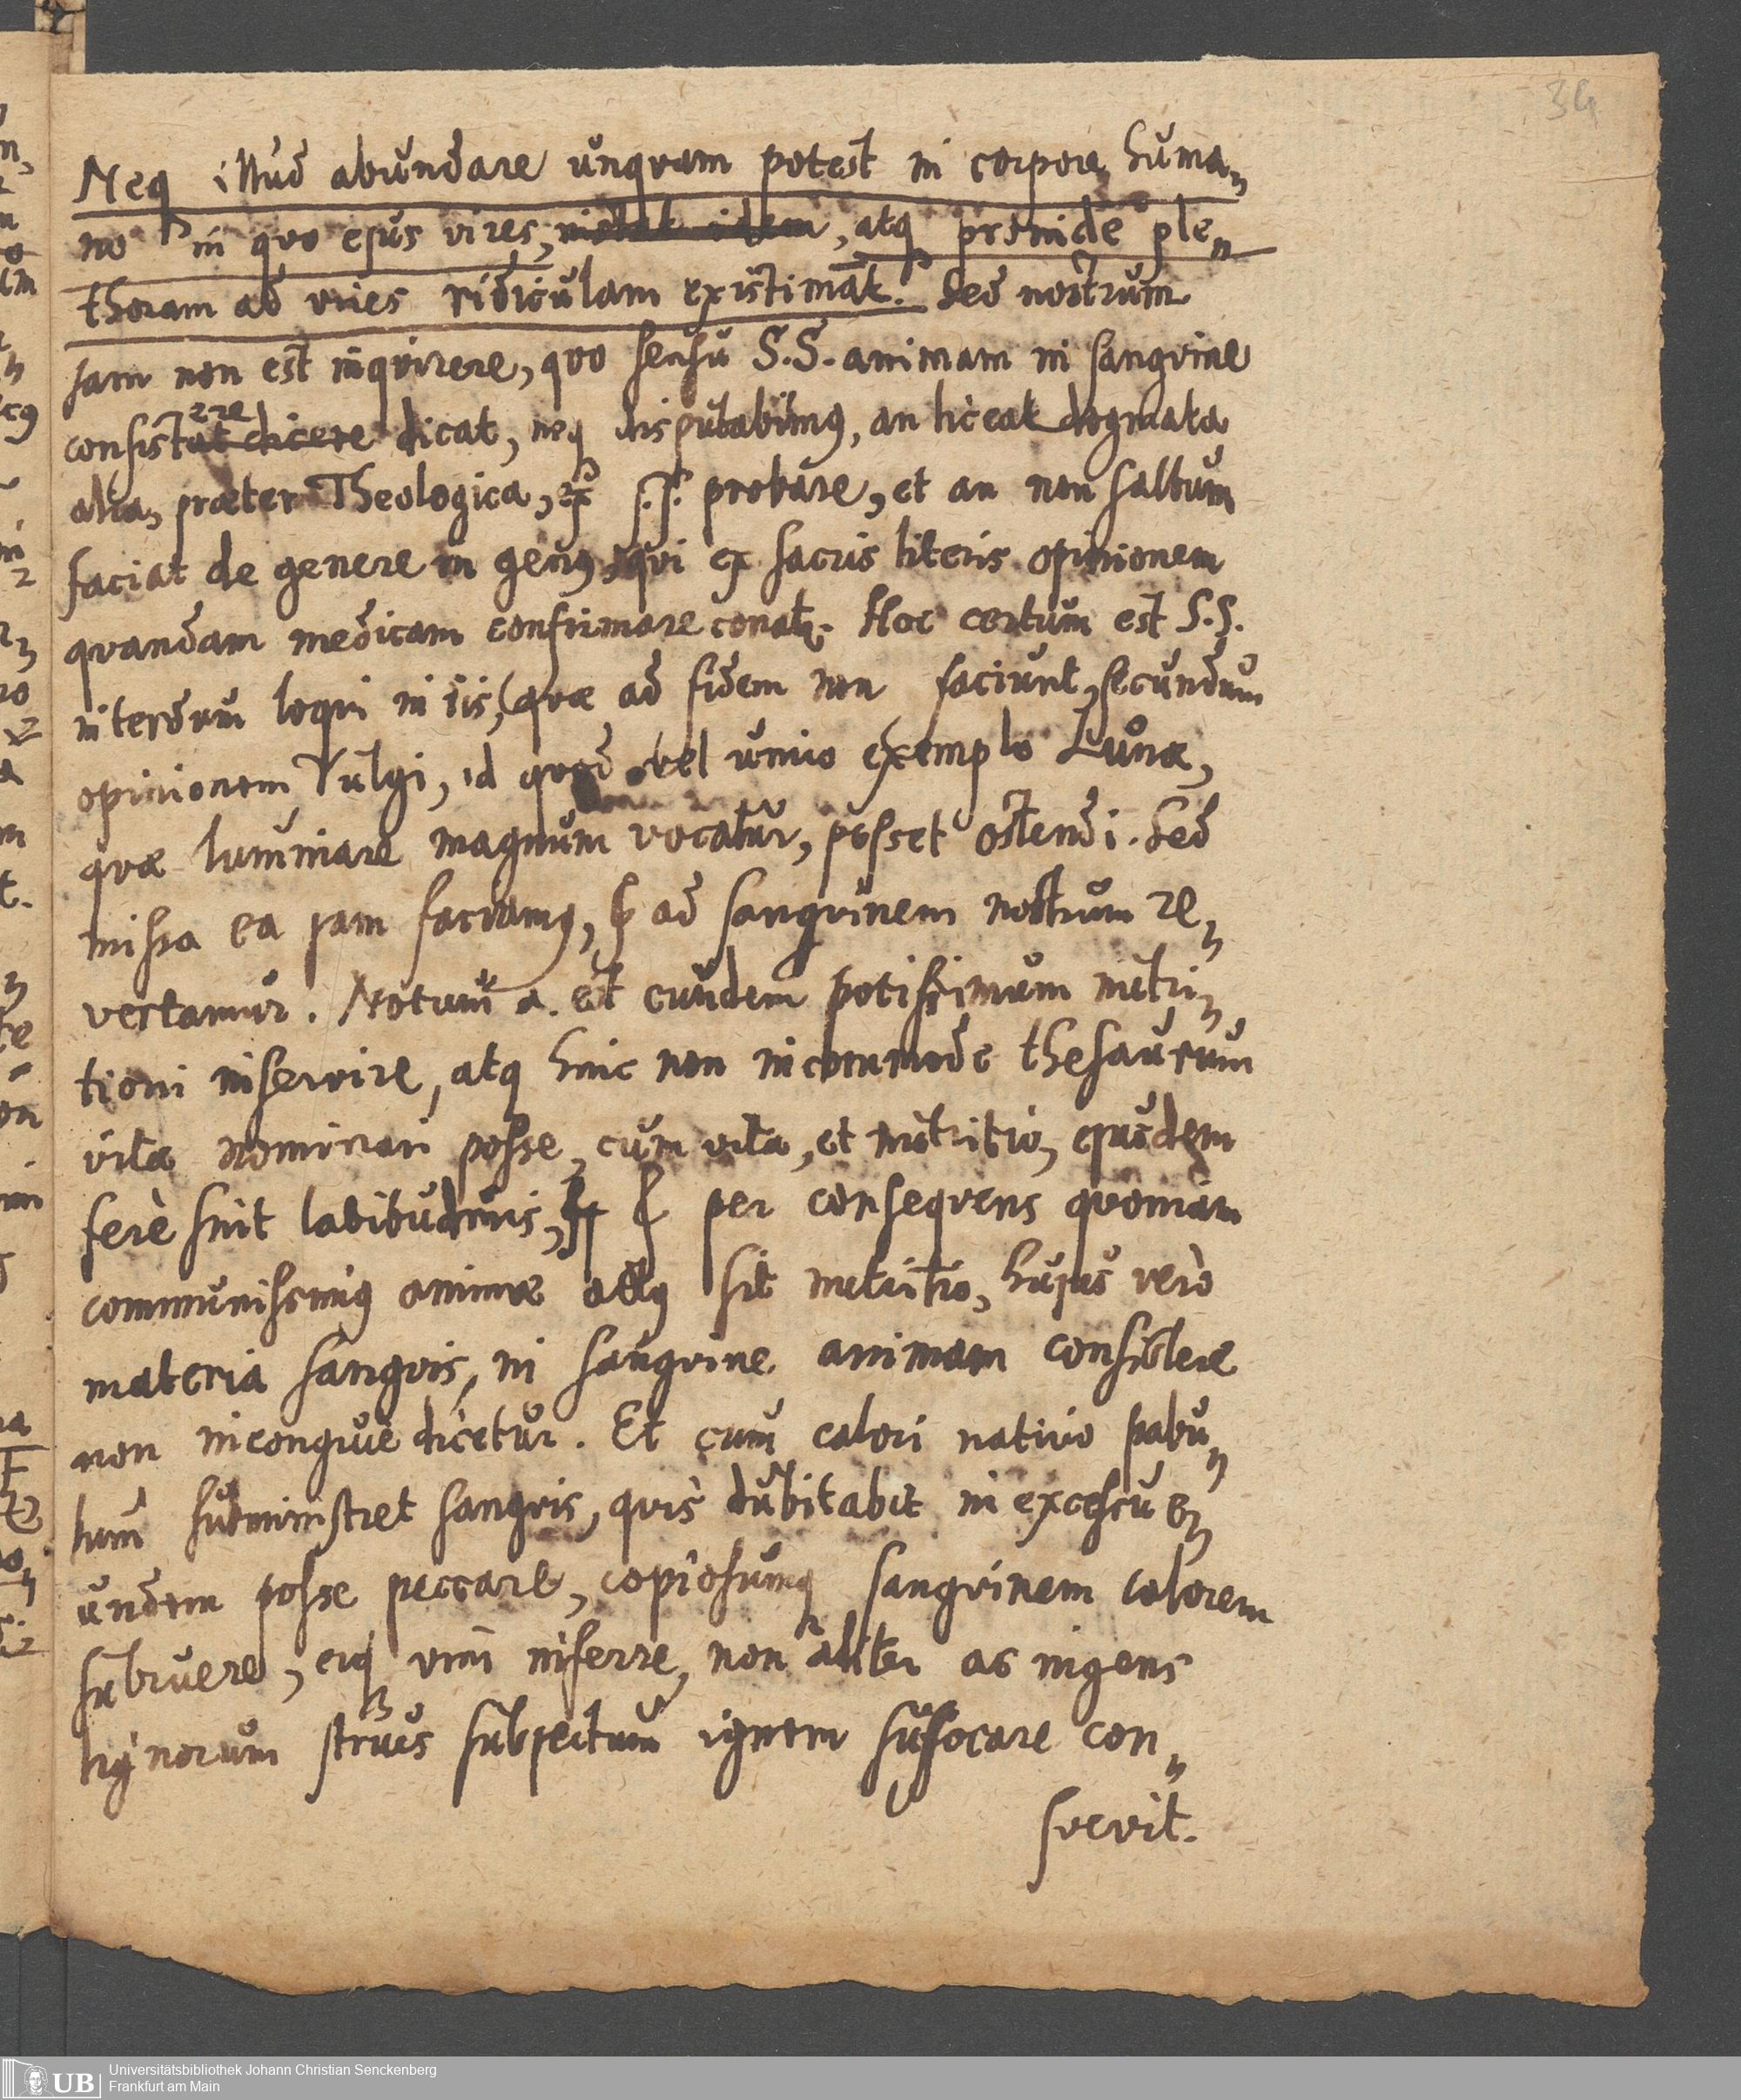 34
Neq illud abundare unqvam potest in corpore huma„
no in qvo ejus vires, atq proinde ple„
thoram ad vires ridiculam existimat. Sed nostrum
jam non est inqvirere, qvo sensu S.S. animam in sangvine
consistere dicat, neq disputabimus, an liceat dogmata
alia, præter Theologica, ex S.S. probare, et an non saltum
faciat de genere in genus, qvi ex sacris literis opinionem
qvandam medicam confirmare conatr. Hoc certum est S.S.
interdum loqvi in iis, qvæ ad fidem non faciunt, secundum
opinionem Vulgi, id qvod vel unico exemplo Lunæ,
qvæ luminare magnum vocatur, posset ostendi. Sed
missa ea jam faciamus, & ad sangvinem nostrum re„
vertamur. Notum a. est eundem potissimum nutri„
tioni inservire, atq hinc non incommode thesaurum
vitæ nominari posse, cum vita, et nutritio, ejusdem
ferè sint latitudinis, & per conseqvens qvoniam
communissimus animæ actus sit nutritio, hujus verò
materia sangvis, in sangvine animam consistere
non incongrue dicetur. Et cum calori nativo pabu„
lum subministret sangvis, qvis dubitabit in excessu e„
undem posse peccare, copiosumq sangvinem calorem
subruere, eiq vim inferre, non aliter ac ingens
lignorum strues subjectum ignem suffocare con„
svevit.
UB
Universitätsbibliothek Johann Christian Senckenberg
Frankfurt am Main